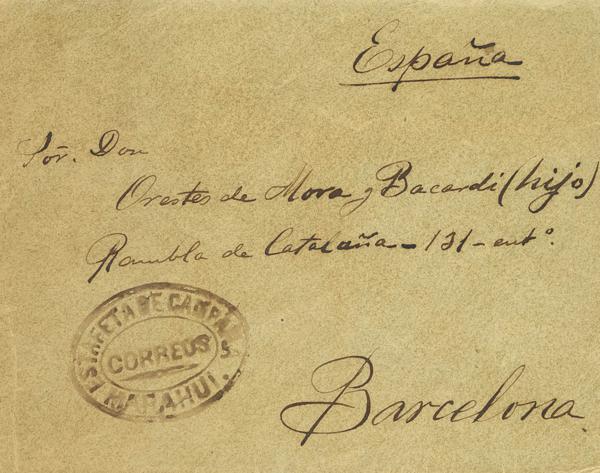 España
Sor. Don
Orestes de Mora y Bacardi (hijo)
Rambla de Cataluña - 131 - entº.
ESTAFETA DE CAMPAÑA
CORREOS
MARAHUI.
Barcelona